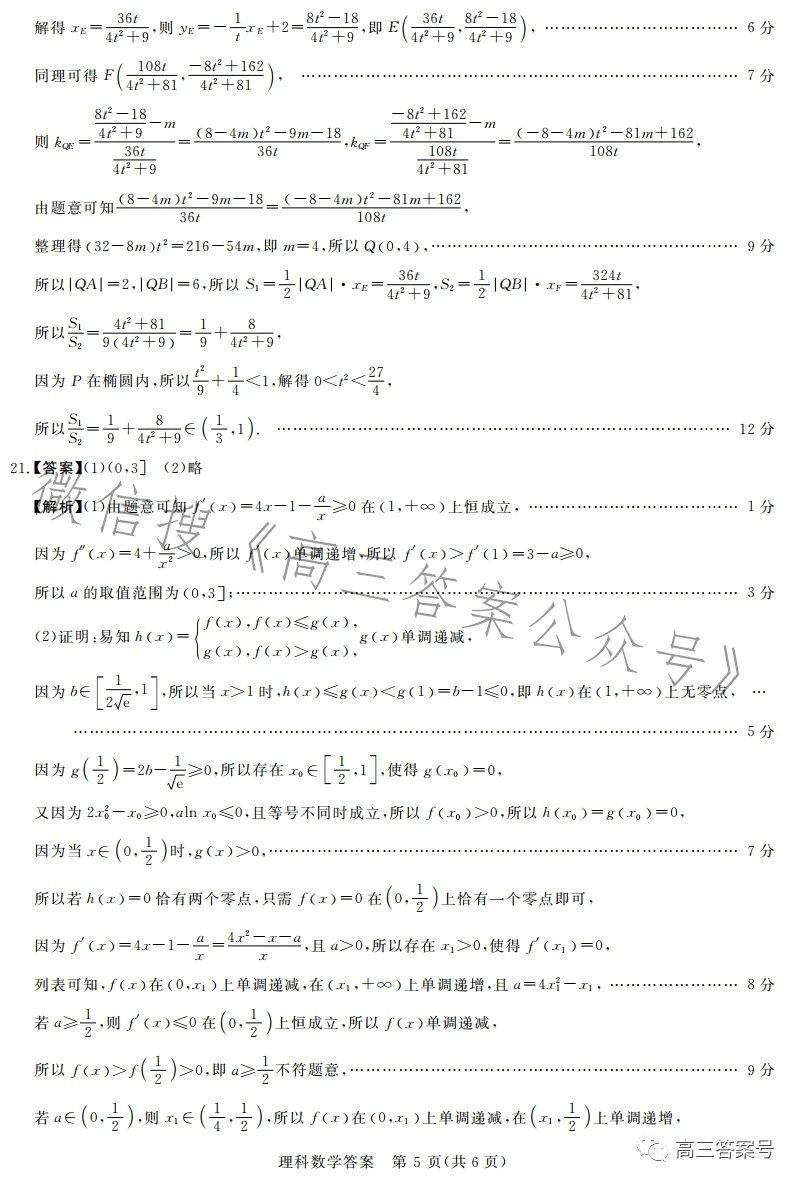 解得 x_E=36t/(4t²+9),则 y_E=-(1/t)x_E+2=(8t²-18)/(4t²+9),即 E(36t/(4t²+9),(8t²-18)/(4t²+9)), …… 6 分
同理可得 F(108t/(4t²+81),(-8t²+162)/(4t²+81)), …… 7 分
则 k_QE=((8t²-18)/(4t²+9)-m)/(36t/(4t²+9))=((8-4m)t²-9m-18)/36t,k_QF=((-8t²+162)/(4t²+81)-m)/(108t/(4t²+81))=((-8-4m)t²-81m+162)/108t,
由题意可知((8-4m)t²-9m-18)/36t=((-8-4m)t²-81m+162)/108t,
整理得(32-8m)t²=216-54m,即 m=4,所以 Q(0,4), …… 9 分
所以|QA|=2,|QB|=6,所以 S₁=1/2|QA|·x_E=36t/(4t²+9),S₂=1/2|QB|·x_F=324t/(4t²+81),
所以S₁/S₂=(4t²+81)/(9(4t²+9))=1/9+8/(4t²+9),
因为 P 在椭圆内,所以t²/9+1/4<1,解得 0<t²<27/4,
所以S₁/S₂=1/9+8/(4t²+9)∈(1/3,1). …… 12 分
21.【答案】(1)(0,3] (2)略
【解析】(1)由题意可知 f′(x)=4x-1-a/x≥0 在(1,+∞)上恒成立, …… 1 分
因为 f″(x)=4+a/x²>0,所以 f′(x)单调递增,所以 f′(x)>f′(1)=3-a≥0,
所以 a 的取值范围为(0,3]; …… 3 分
(2)证明:易知 h(x)={f(x),f(x)≤g(x), g(x),f(x)>g(x), g(x)单调递减,
因为 b∈[1/(2√e),1],所以当 x>1 时,h(x)≤g(x)<g(1)=b-1≤0,即 h(x)在(1,+∞)上无零点, …
…… 5 分
因为 g(1/2)=2b-1/√e≥0,所以存在 x₀∈[1/2,1],使得 g(x₀)=0,
又因为 2x₀²-x₀≥0,aln x₀≤0,且等号不同时成立,所以 f(x₀)>0,所以 h(x₀)=g(x₀)=0,
因为当 x∈(0,1/2)时,g(x)>0, …… 7 分
所以若 h(x)=0 恰有两个零点,只需 f(x)=0 在(0,1/2)上恰有一个零点即可,
因为 f′(x)=4x-1-a/x=(4x²-x-a)/x,且 a>0,所以存在 x₁>0,使得 f′(x₁)=0,
列表可知,f(x)在(0,x₁)上单调递减,在(x₁,+∞)上单调递增,且 a=4x₁²-x₁, …… 8 分
若 a≥1/2,则 f′(x)≤0 在(0,1/2)上恒成立,所以 f(x)单调递减,
所以 f(x)>f(1/2)>0,即 a≥1/2不符题意, …… 9 分
若 a∈(0,1/2),则 x₁∈(1/4,1/2),所以 f(x)在(0,x₁)上单调递减,在(x₁,1/2)上单调递增,
理科数学答案 第 5 页(共 6 页)
微信搜《高三答案公众号》
高三答案号